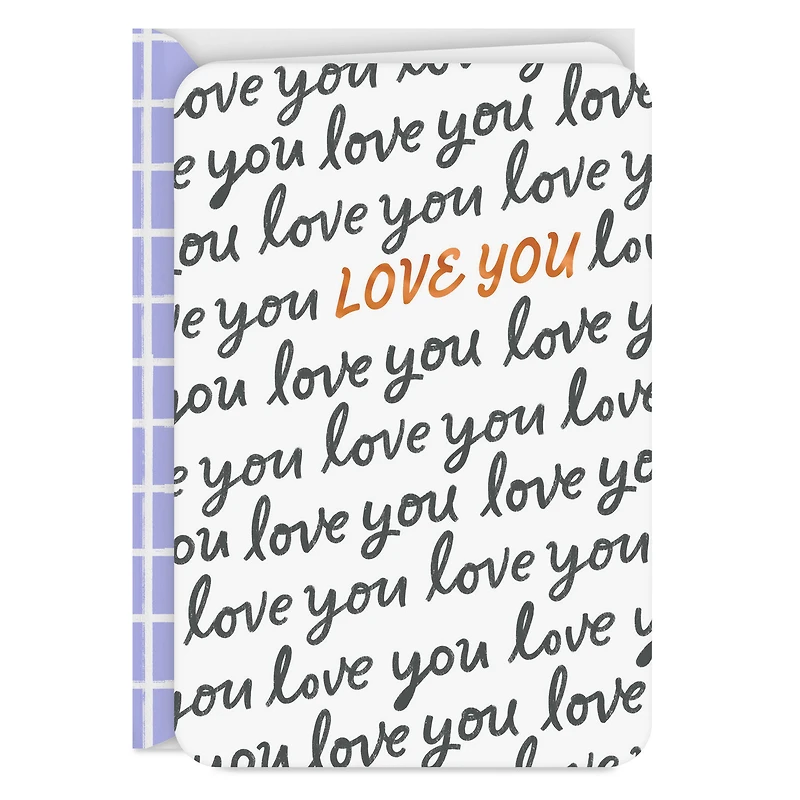 love you
e you love you love
you love you love y
ve you LOVE YOU lov
you love you love y
e you love you love
ou love you love yo
love you love you
you love you love y
you love you love
love